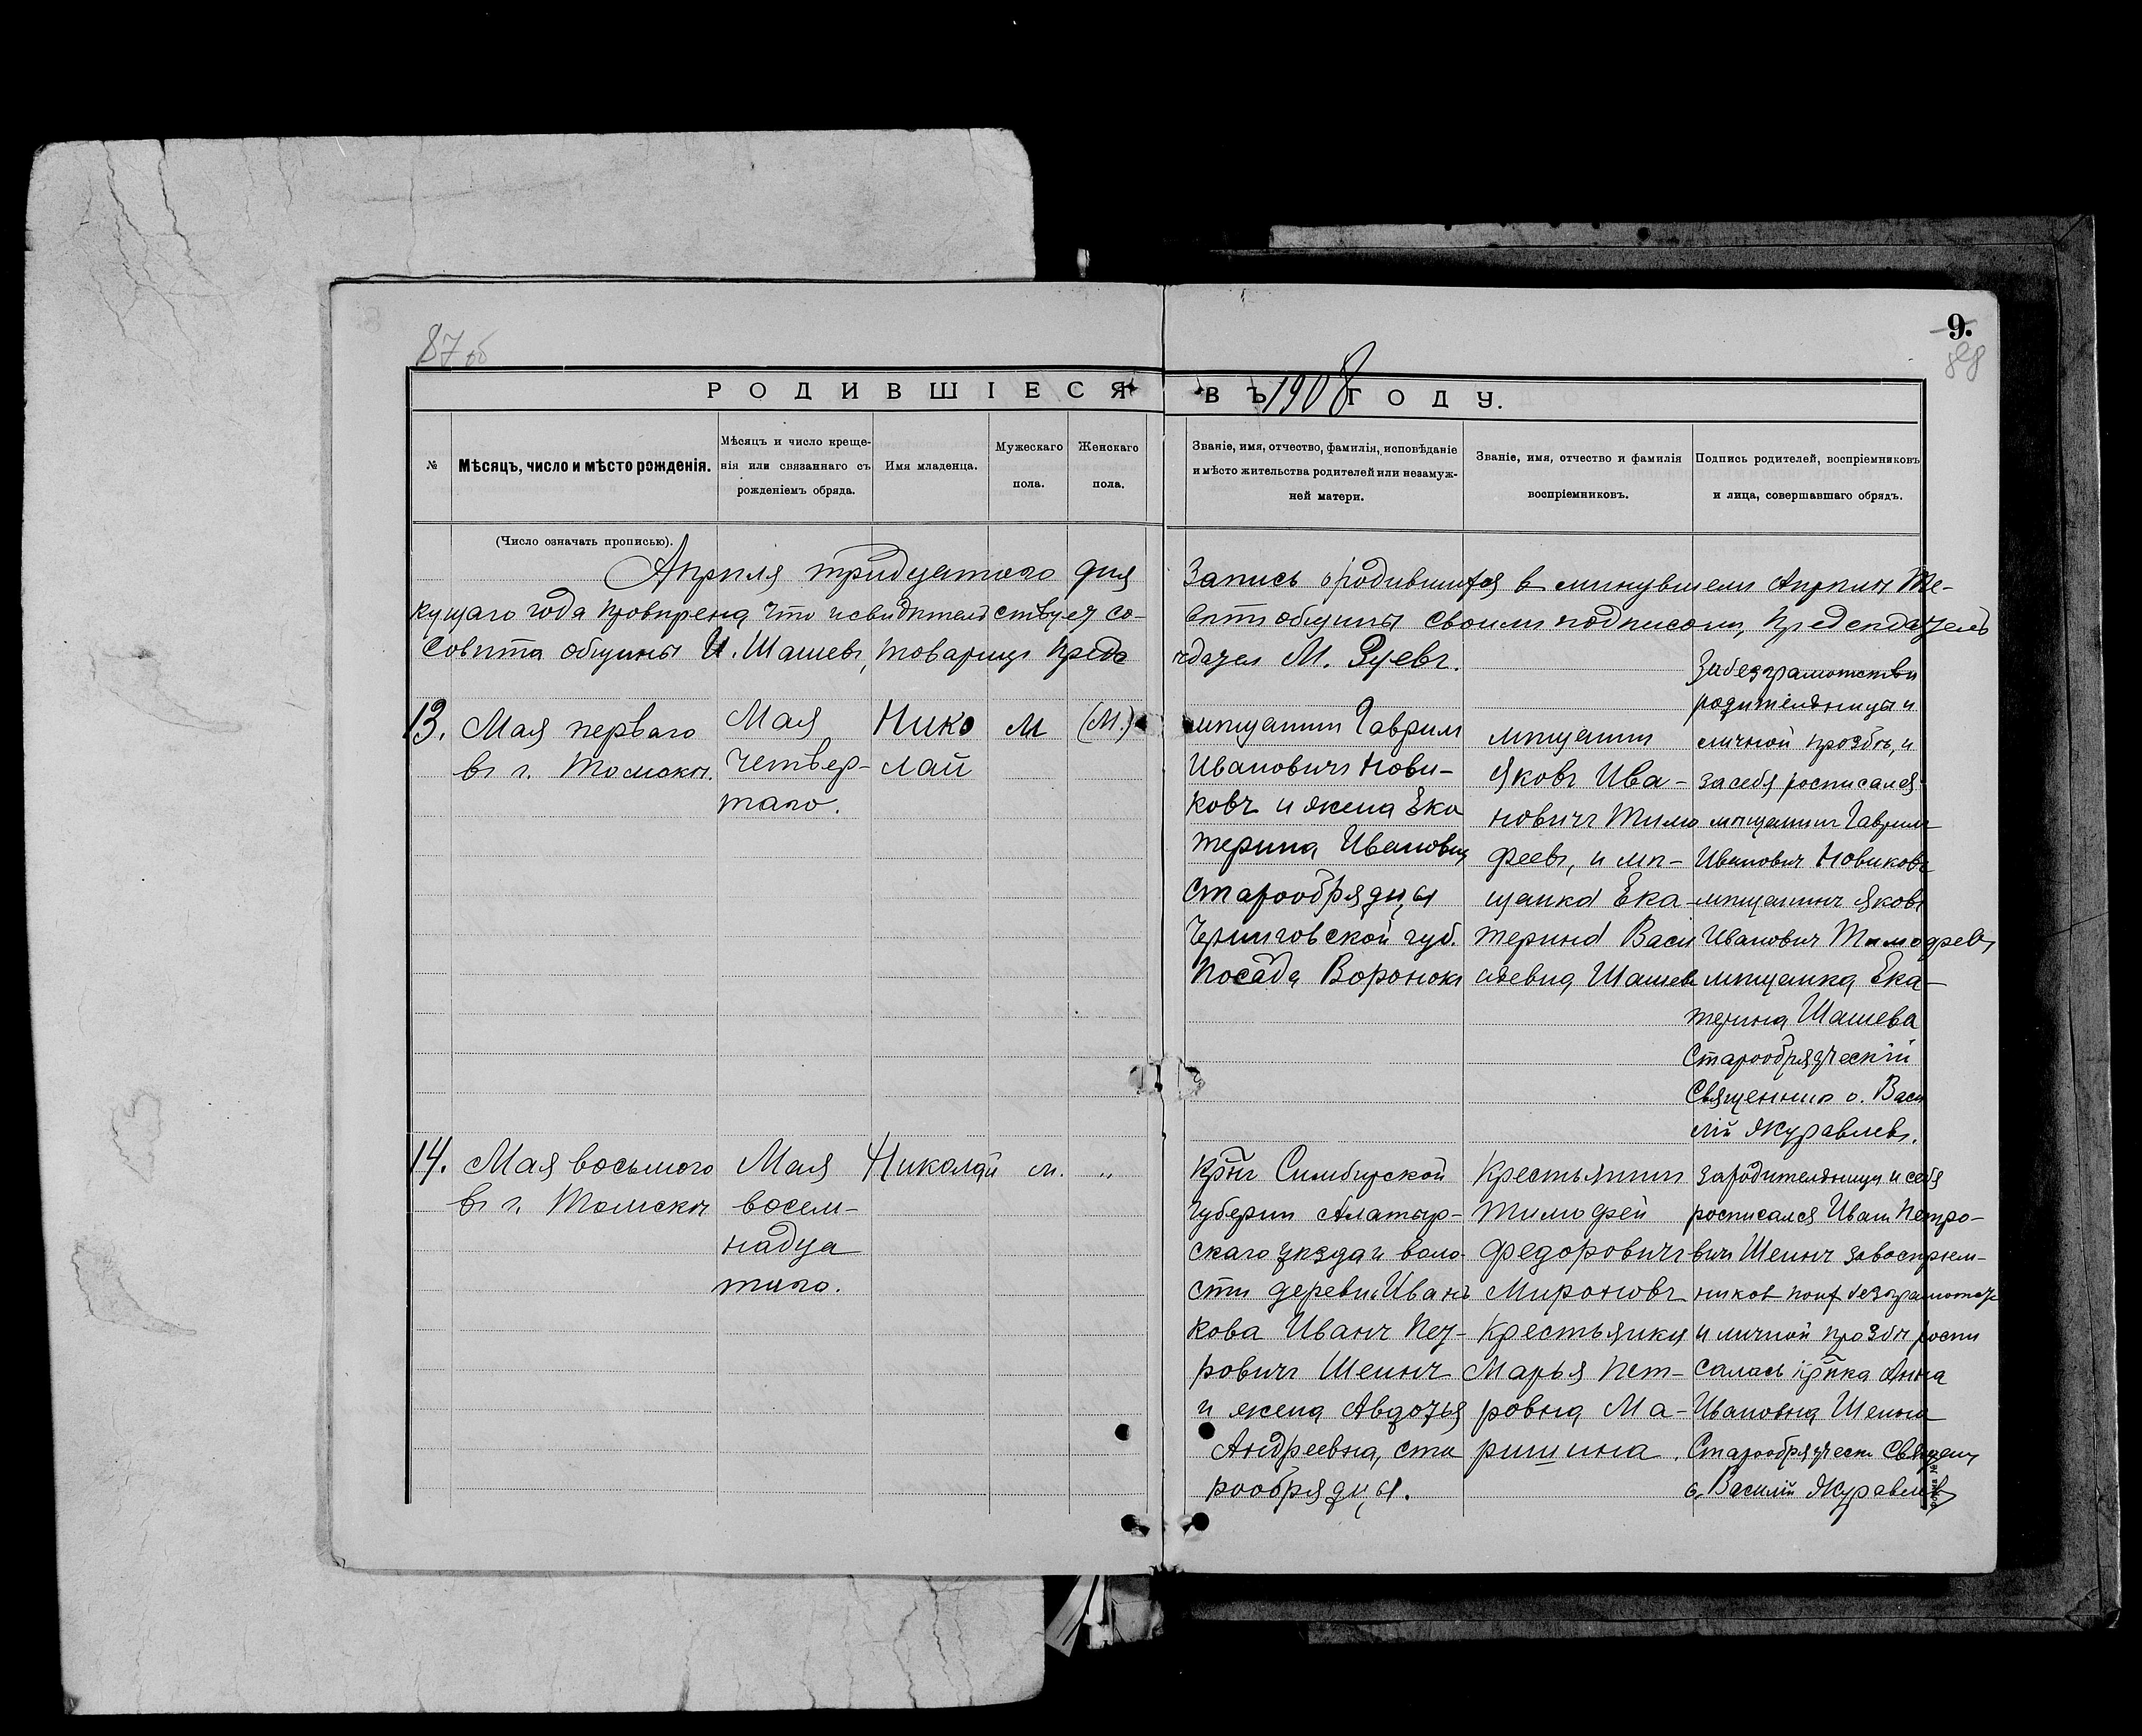 87 об
9.
88
РОДИВШІЕСЯ ВЪ 1908 ГОДУ.
№
Мѣсяцъ, число и мѣсто рожденія.
Мѣсяцъ и число креще-
нія или связаннаго съ
рожденіемъ обряда.
Имя младенца.
Мужескаго
пола.
Женскаго
пола.
Званіе, имя, отчество, фамилія, исповѣданіе
и мѣсто жительства родителей или незамуж-
ней матери.
Званіе, имя, отчество и фамилія
воспріемниковъ.
Подпись родителей, воспріемниковъ
и лица, совершавшаго обрядъ.
(Число означать прописью).
Апрѣля тридцатаго дня Запись о родившихся в минувшем Апрѣлѣ те-
кущаго года провѣрена, что и свидѣтельствуетъ со-вѣтъ общины своимъ подписом, Председатель
Совѣта общины И. Шашевъ, товарищъ предсѣдател М. Зуевъ.
13.
Мая перваго
въ г. Томскѣ.
Мая
четвер-
таго.
Нико
лай
м
(М.)
мѣщанин Гаврил
Ивановичъ Нови-
ковъ и жена Ека
терина Ивановна
Старообрядцы
Черниговской губ.
Посада Воронокъ
мѣщанин
Яковъ Ива-
новичъ Тимо
феевъ, и мѣ-
щанка Ека-
терина Васи
льевна Шашева
За безграмотством
родительницы и
личной прозбѣ, и
за себя росписался
мѣщанин Гаврил
Иванович Новиковъ
мѣщанинъ Яковъ
Иванович Тимофеевъ
мѣщанка Ека-
терина Шашева
Старообрядческій
Священник о. Васи
лій Журавлевъ.
14.
Мая восьмого
въ г. Томскѣ
Мая
восем-
надца
таго.
Николай
м.
"
Крнъ Симбирской
губерни Алатыр-
скаго уѣзда и воло-
сти деревни Иванъ
кова Иванъ Пет-
ровичъ Шеинъ
и жена Авдотья
Андреевна, ста
рообрядцы.
Крестьянин
Тимофей
Федоровичъ
Мироновъ
Крестьянка
Марья Пет-
ровна Ма-
ришина.
За родительницу и себя
росписался Иван Петро-
вич Шеинъ за восприем-
ников по их безграмотст
и личной прозбѣ роспи
салась крнка Анна
Ивановна Шеина
Старообрядческ Священ
о. Василій Журавлев